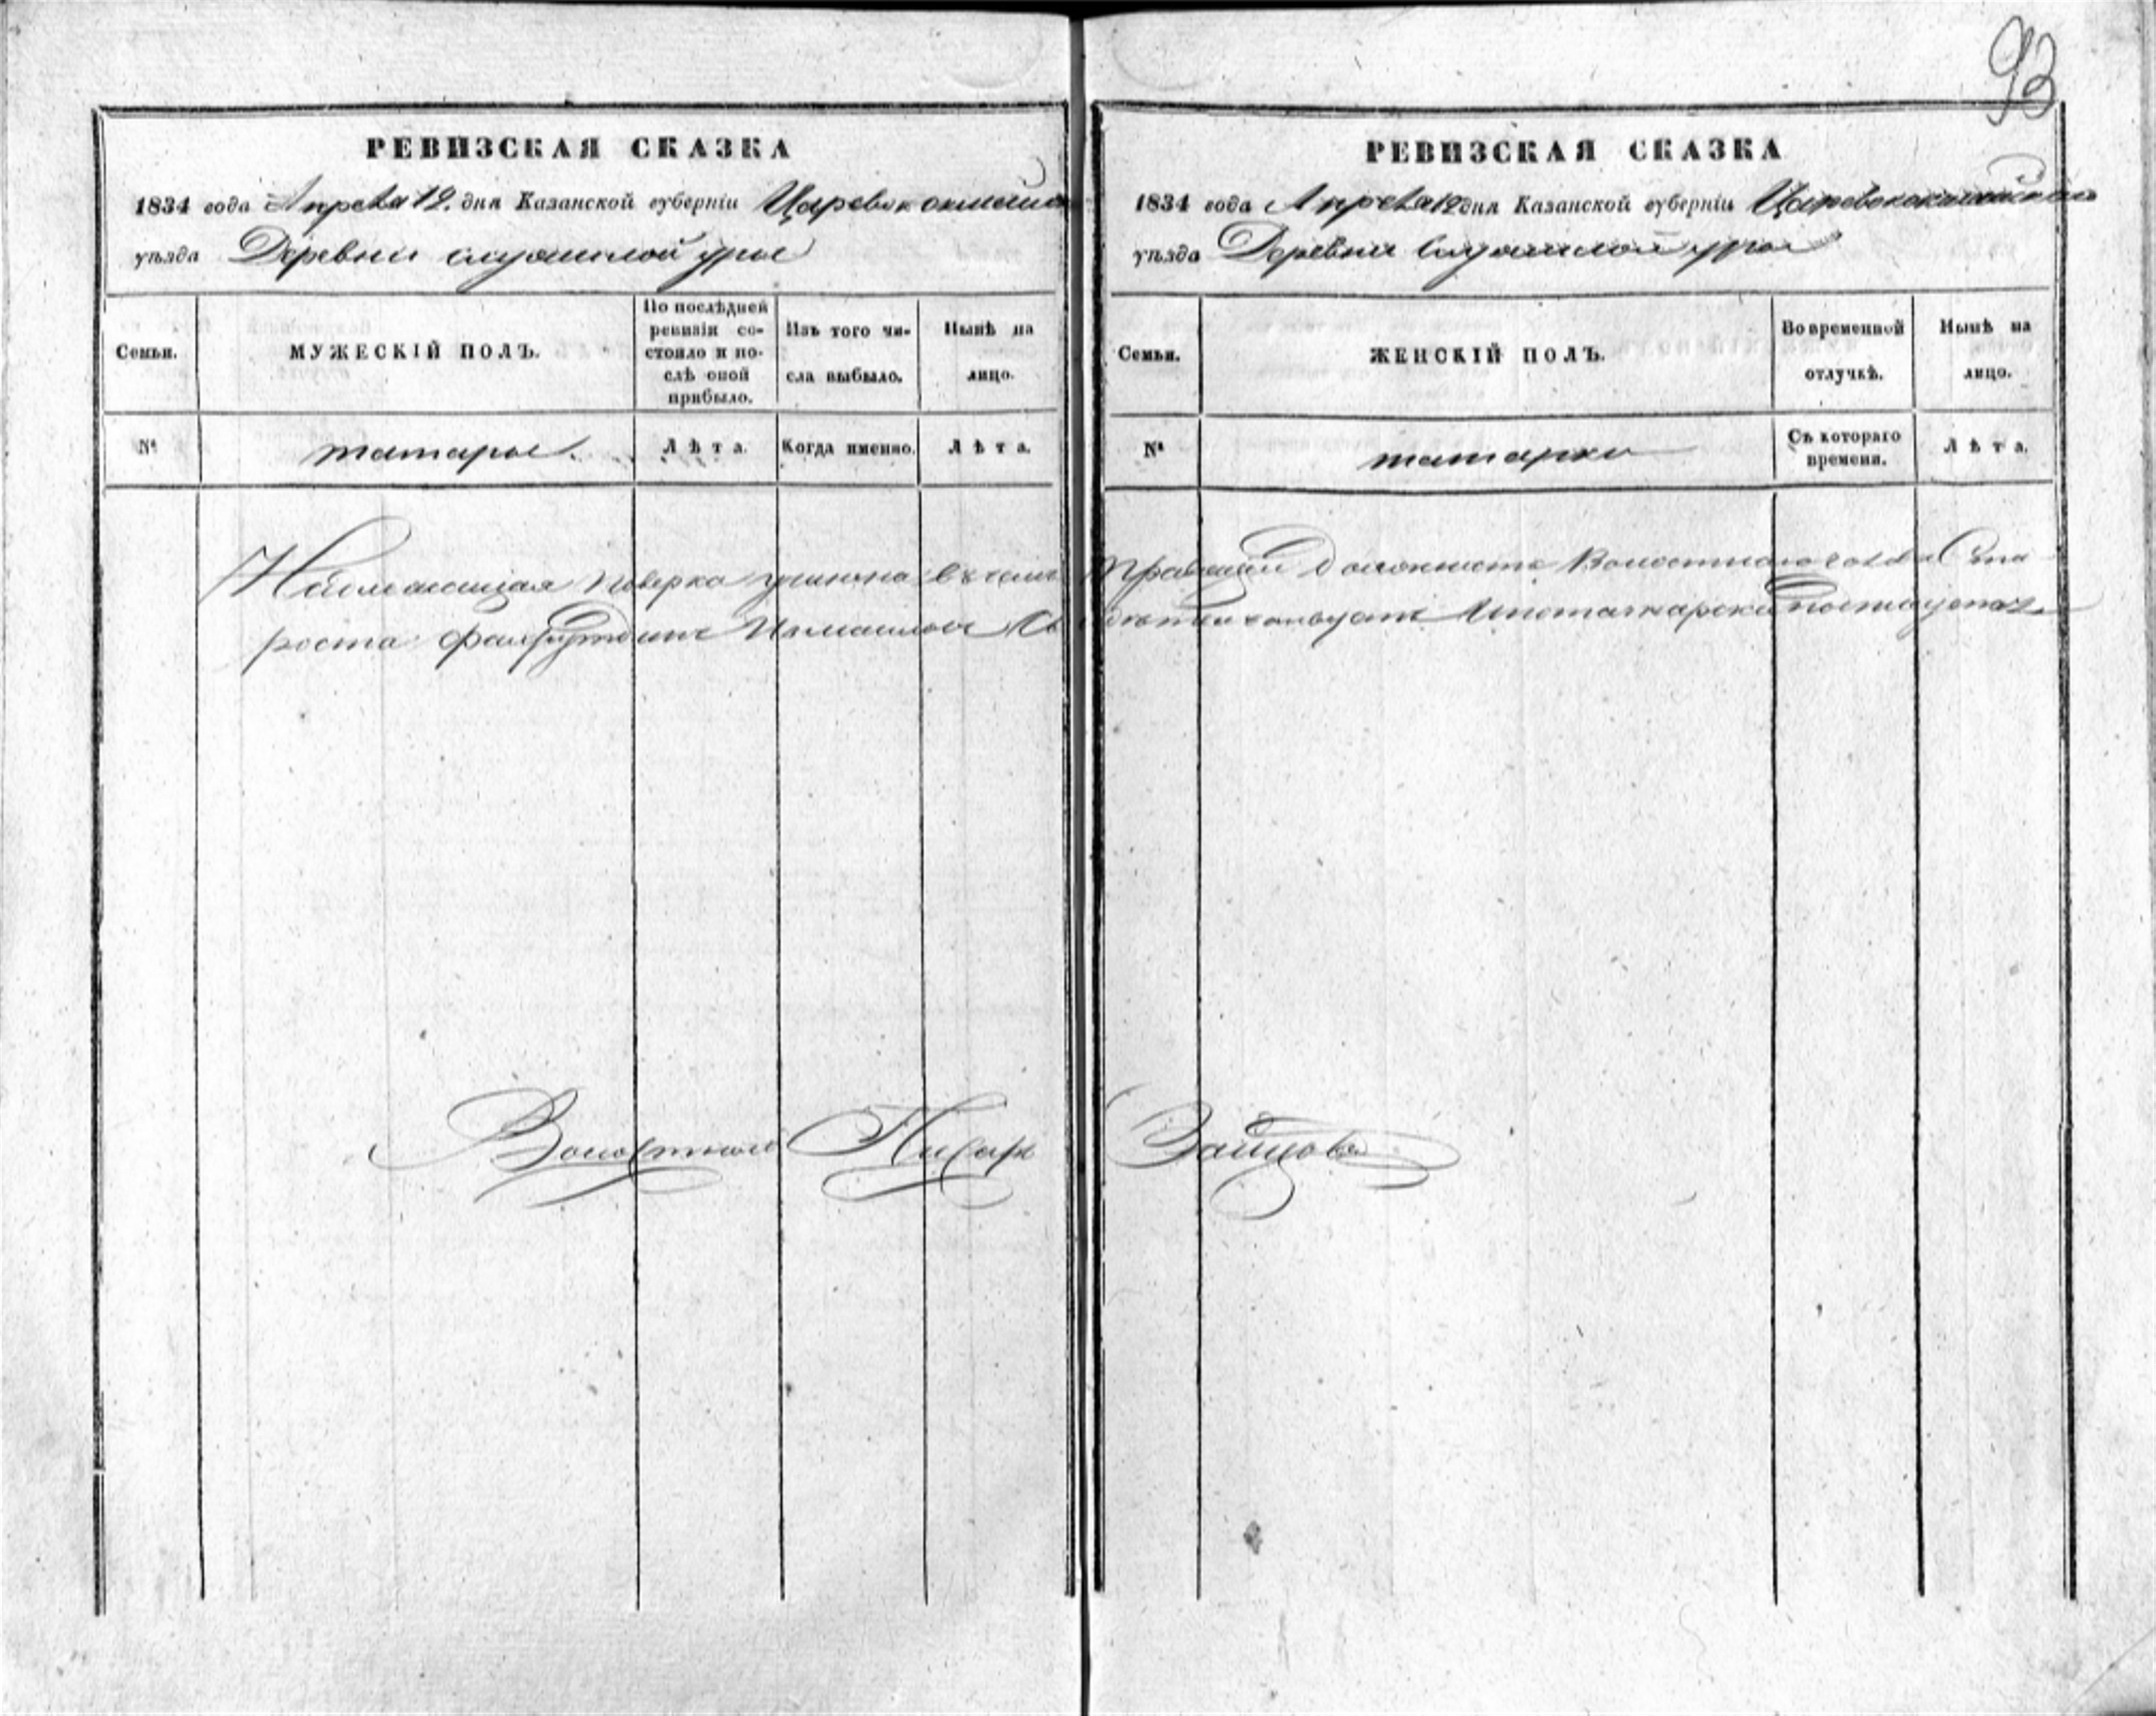 93
РЕВИЗСКАЯ СКАЗКА
1834 года Апреля 12. дня Казанской губерніи Царевококшайска
уѣзда Деревни уры
Семьи.
МУЖЕСКІЙ ПОЛЪ.
По послѣдней
ревизіи со-
стояло и по-
слѣ оной
прибыло.
Изъ того чи-
сла выбыло.
Нынѣ на
лицо.
№
татары.
Лѣта.
Когда именно.
Лѣта.
РЕВИЗСКАЯ СКАЗКА
1834 года Апреля 12 дня Казанской губерніи Царевококшайскаго
уѣзда Деревни уры
Семьи.
ЖЕНСКІЙ ПОЛЪ.
Во временной
отлучкѣ.
Нынѣ на
лицо.
№
татарки
Съ котораго
времени.
Лѣта.
поверка учинена в чемъ Правящий должность Волостнаго голова Ста
роста
Волостной Писарь Зайцовъ